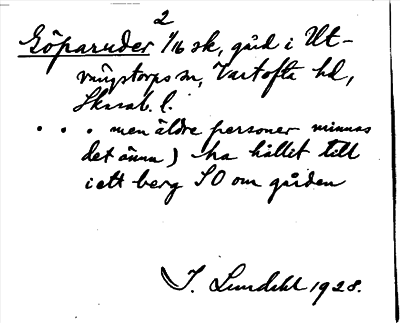 2
Göparuder 1/16 sk, gård i Ut-
vängstorps sn, Vartofta hd,
Skarab. l.
. . . men äldre personer minnas
det ännu) ha hållit till
i ett berg SO om gården
J. Lundahl 1928.